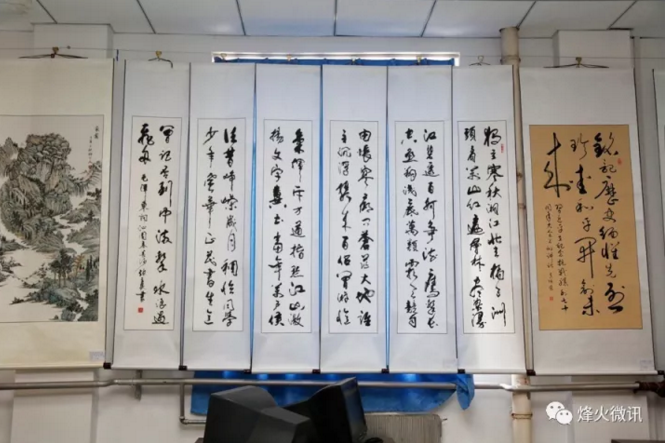 铭记历史缅怀先烈
珍爱和平开创未
来
独立寒秋湘江北去橘子洲
头看万山红遍层林尽染漫
江碧透百舸争流鹰击长
空鱼翔浅底万类霜天竞自
由怅寥廓问苍茫大地谁
主沉浮携来百侣曾游忆
气挥斥方遒指点江山激
扬文字粪土当年万户侯
往昔峥嵘岁月稠恰同学
少年风华正茂书生意
曾记否到中流击水浪遏
飞舟 毛泽东词沁园春长沙
烽火微讯